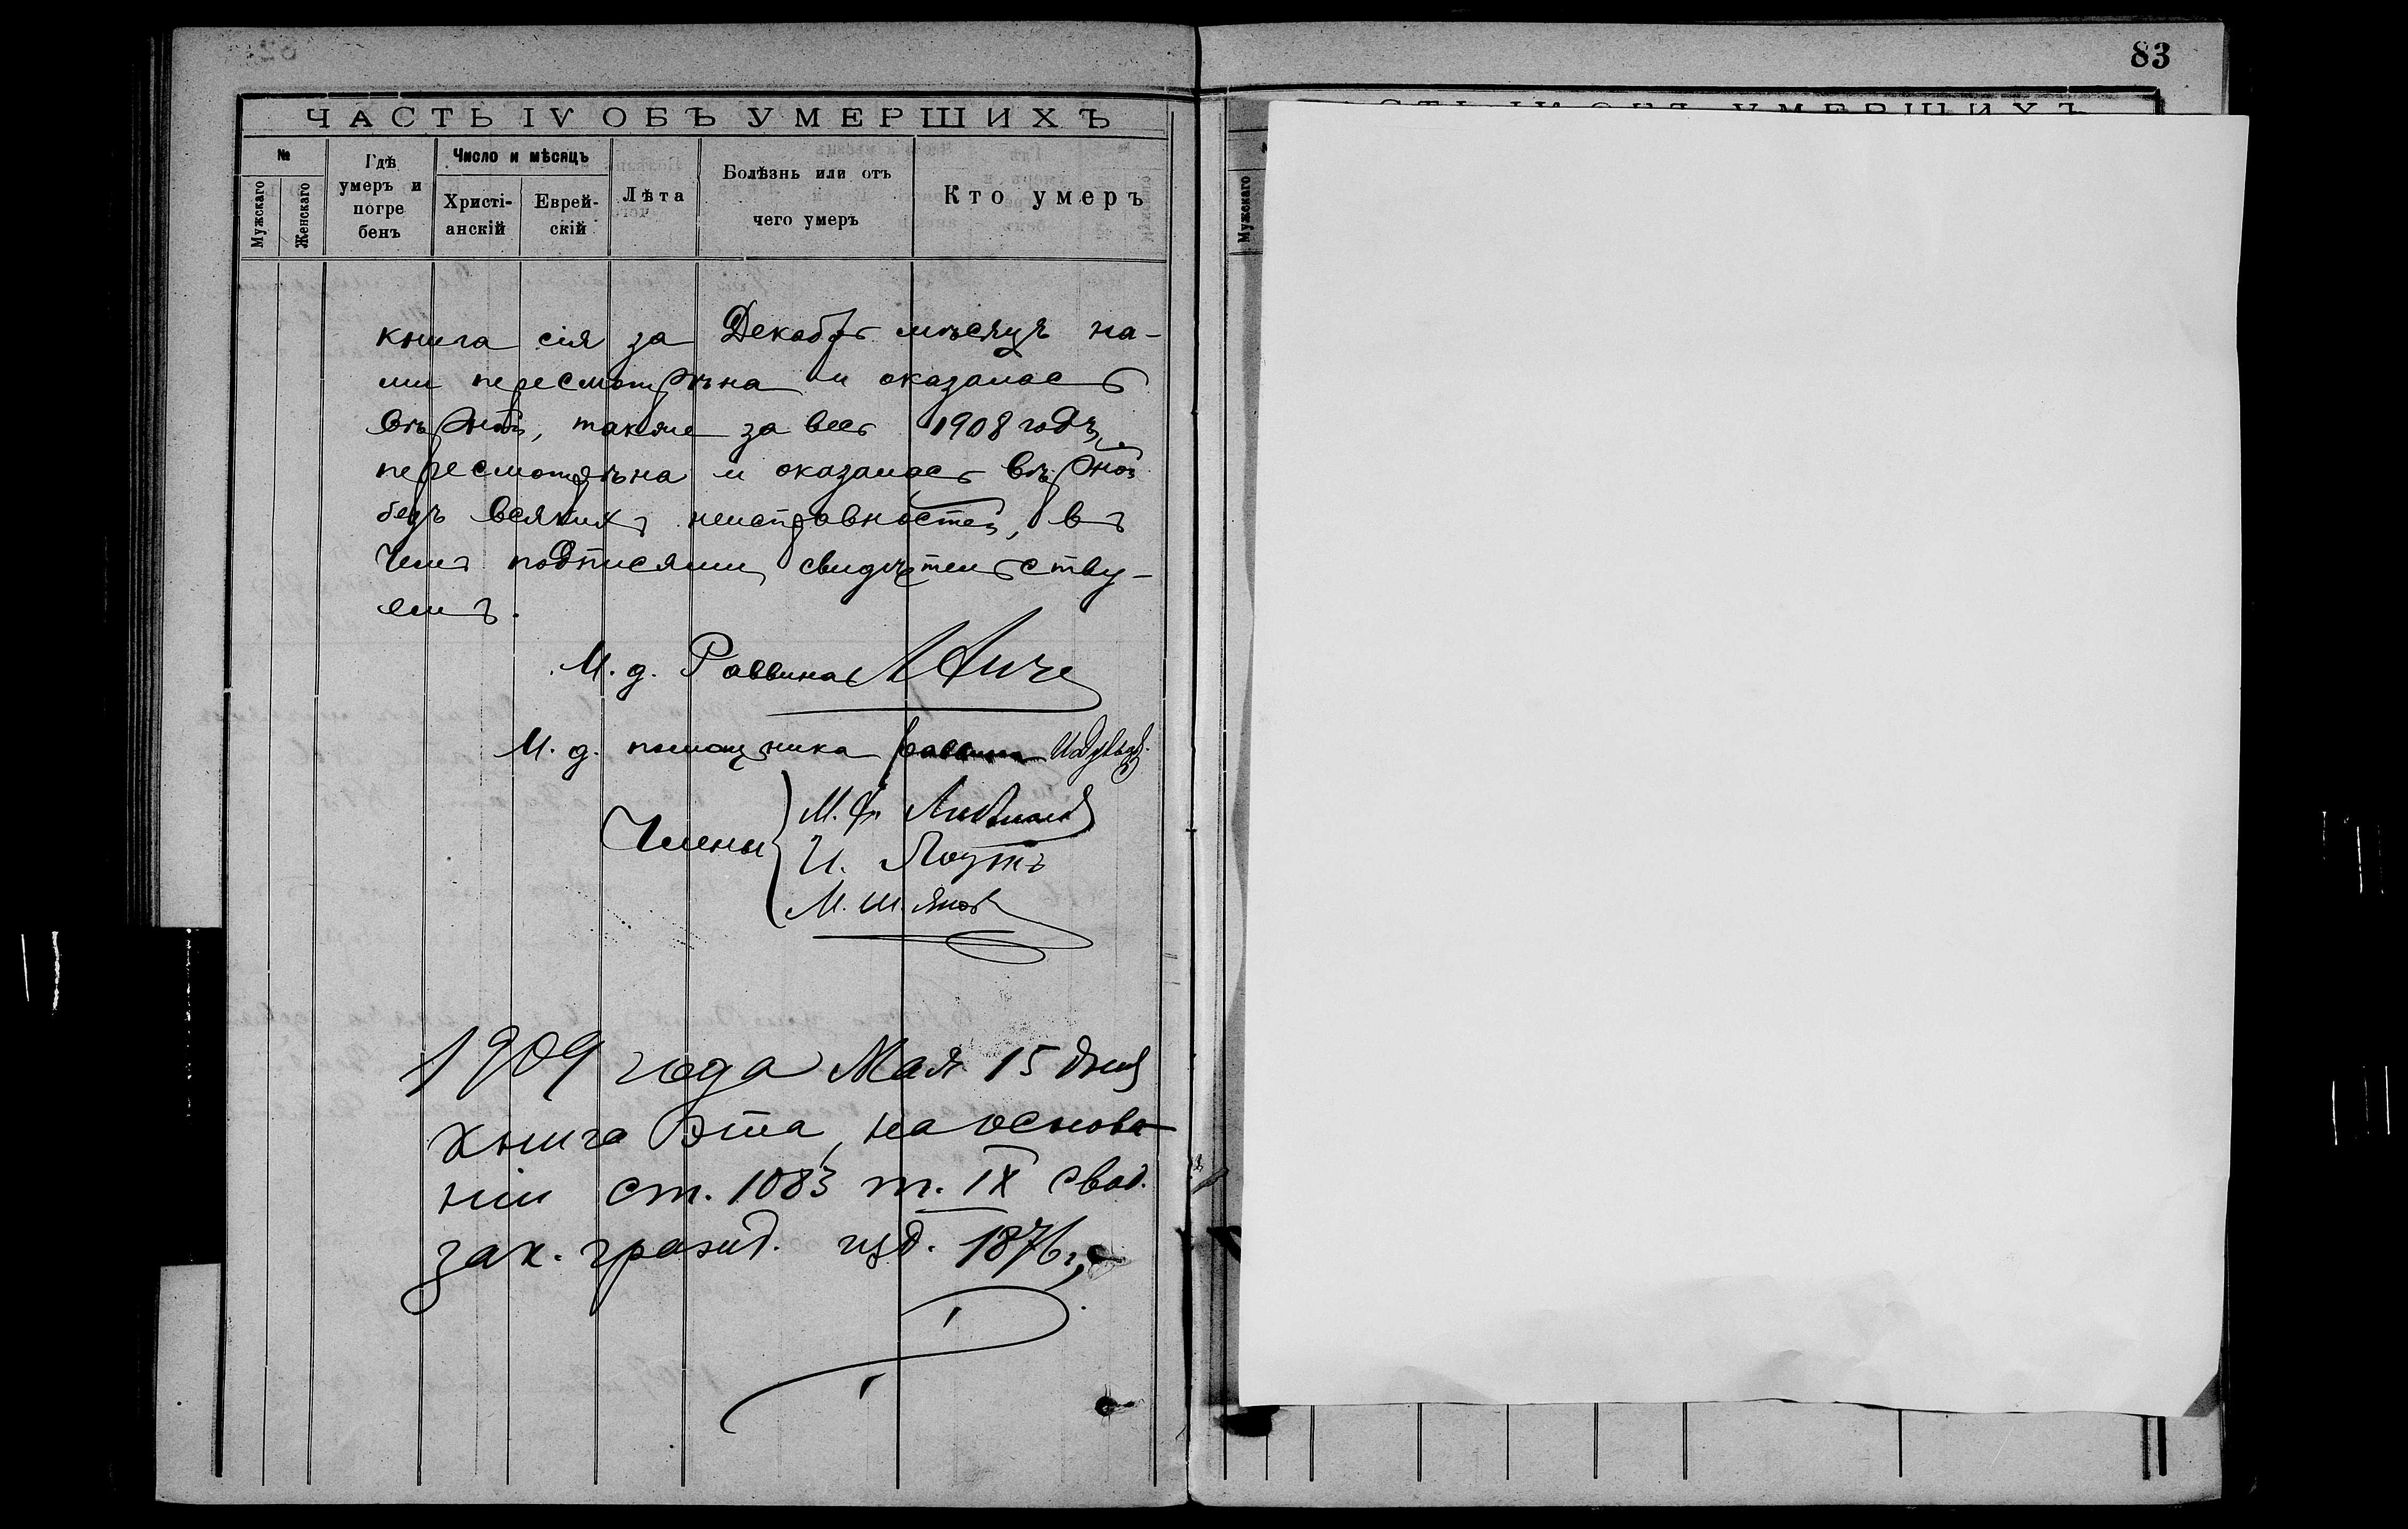 83
ЧАСТЬ IV ОБЪ УМЕРШИХЪ
№
Мужскаго
Женскаго
Гдѣ
умеръ и
погре
бенъ
Число и мѣсяцъ
Христі-
анскій
Еврей-
скій
Лѣта
Болѣзнь или отъ
чего умеръ
Кто умеръ
книга сія за Декабрь мѣсяцъ на-
ми пересмотрѣна и оказалась
вѣрной, также за весь 1908 годъ
пересмотрѣна и оказалась вѣрной
безъ всякихъ неисправностей, въ
чемъ подписями свидѣтельству-
емъ.
И. д. Раввина
И. д. помощника раввина
Члены
М.
И.
М. Ш.
1909 года Мая 15 дня
книга эта, на основа-
ніи ст. 1083 т. IX свод.
зак. гражд. изд. 1876 г.,
Мужскаго